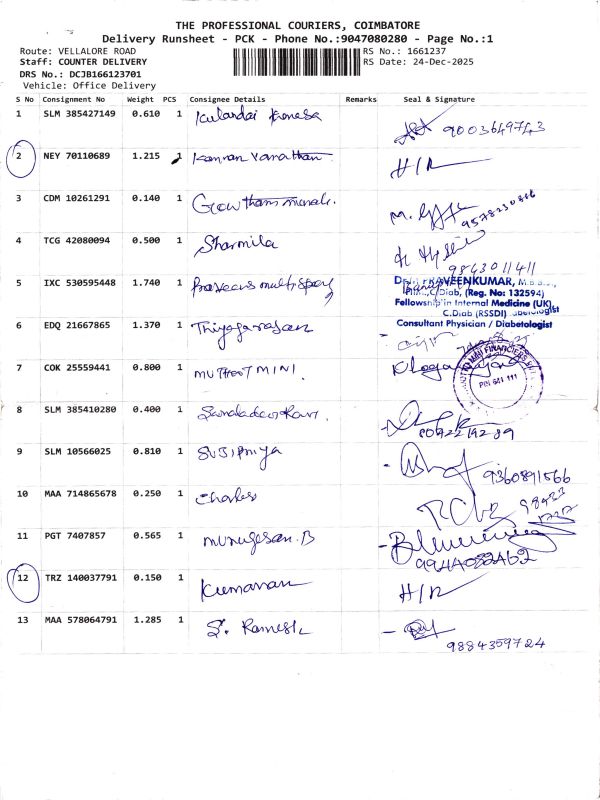 THE PROFESSIONAL COURIERS, COIMBATORE
Delivery Runsheet - PCK - Phone No.:9047080280 - Page No.:1
Route: VELLALORE ROAD RS No.: 1661237
Staff: COUNTER DELIVERY RS Date: 24-Dec-2025
DRS No.: DCJB166123701
Vehicle: Office Delivery
S No Consignment No Weight PCS Consignee Details Remarks Seal & Signature
1 SLM 385427149 0.610 1 Kulandai
9003649743
2 NEY 70110689 1.215 1 Kannan H/R
3 CDM 10261291 0.140 1
9578230866
4 TCG 42080094 0.500 1 Sharmila
9843011411
5 IXC 530595448 1.740 1 PRAVEENKUMAR, M.B.B.S.,
C.Diab, (Reg. No: 132594)
Fellowship in Internal Medicine (UK),
C.Diab (RSSDI)
Consultant Physician / Diabetologist
6 EDQ 21667865 1.370 1 Thiyagarajan
7 COK 25559441 0.800 1 MUTHOOT MINI.
MINI FINANCIERS
PIN 641 111
8 SLM 385410280 0.400 1
9 SLM 10566025 0.810 1
9360891566
10 MAA 714865678 0.250 1 Charles
11 PGT 7407857 0.565 1 Murugesan.B
12 TRZ 140037791 0.150 1 Kumanan H/R
13 MAA 578064791 1.285 1 S. Ramesh
9884359724